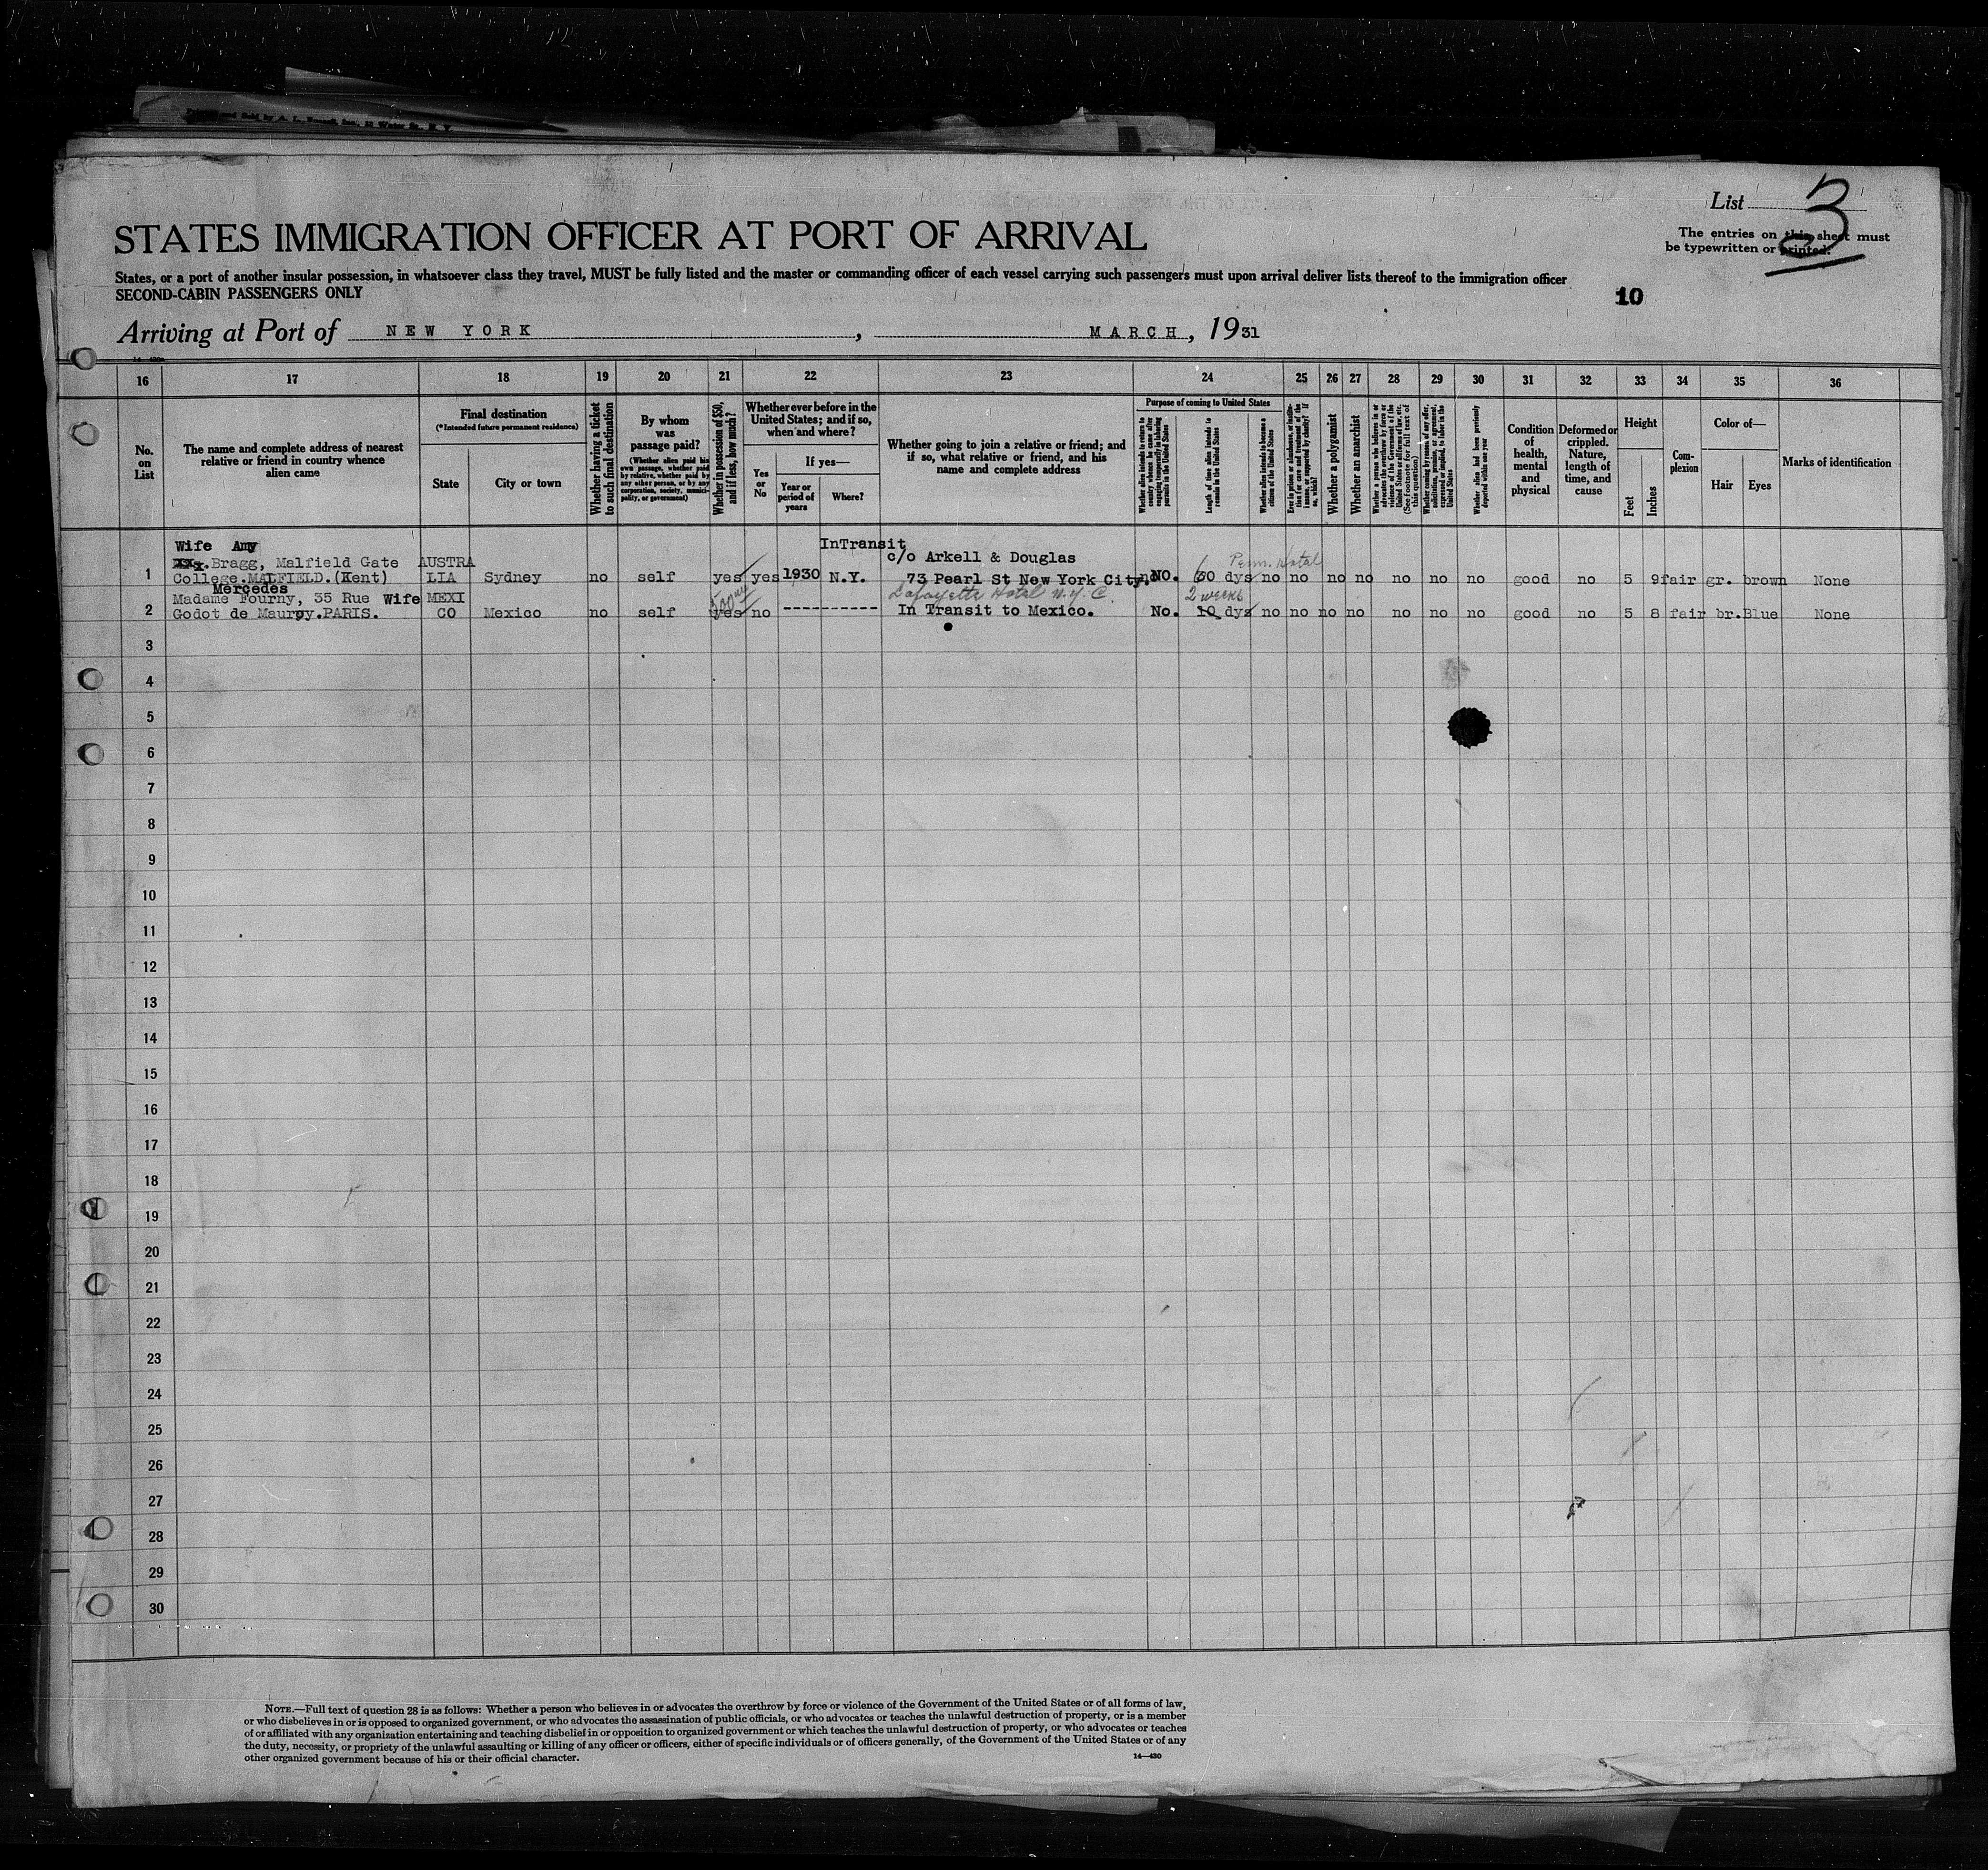 List 3
The entries on this sheet must
be typewritten or printed.
STATES IMMIGRATION OFFICER AT PORT OF ARRIVAL
States, or a port of another insular possession, in whatsoever class they travel, MUST be fully listed and the master or commanding officer of each vessel carrying such passengers must upon arrival deliver lists thereof to the immigration officer
SECOND-CABIN PASSENGERS ONLY
10
Arriving at Port of NEW YORK, MARCH, 1931
16 17 18 19 20 21 22 23 24 25 26 27 28 29 30 31 32 33 34 35 36
No.
on
List
The name and complete address of nearest
relative or friend in country whence
alien came
Final destination
(*Intended future permanent residence)
State
City or town
Whether having a ticket
to such final destination
By whom
was
passage paid?
(Whether alien paid his
own passage, whether paid
by relative, whether paid by
any other person, or by any
corporation, society, munici-
pality, or government)
Whether in possession of $50,
and if less, how much?
Whether ever before in the
United States; and if so,
when and where?
Yes
or
No
If yes—
Year or
period of
years
Where?
Whether going to join a relative or friend; and
if so, what relative or friend, and his
name and complete address
Purpose of coming to United States
Whether alien intends to return to
country whence he came after
engaging temporarily in laboring
pursuits in the United States
Length of time alien intends to
remain in the United States
Whether alien intends to become a
citizen of the United States
Whether a polygamist
Whether an anarchist
Whether alien had been previously
deported within one year
Condition
of
health,
mental
and
physical
Deformed or
crippled.
Nature,
length of
time, and
cause
Height
Feet
Inches
Com-
plexion
Color of—
Hair
Eyes
Marks of identification
Wife Amy InTransit
Bragg, Malfield Gate AUSTRA c/o Arkell & Douglas
1 College.MALFIELD.(Kent) LIA Sydney no self yes yes 1930 N.Y. 73 Pearl St New York City. NO. 60 dys no no no no no no no good no 5 9 fair gr. brown None
Mercedes
Madame Fourny, 35 Rue Wife MEXI Lafayette Hotel N.Y.C. 2 weeks
2 Godot de Maurpy.PARIS. CO Mexico no self yes no ----------- In Transit to Mexico. No. 10 dys no no no no no no no good no 5 8 fair br. Blue None
3
4
5
6
7
8
9
10
11
12
13
14
15
16
17
18
19
20
21
22
23
24
25
26
27
28
29
30
NOTE.—Full text of question 28 is as follows: Whether a person who believes in or advocates the overthrow by force or violence of the Government of the United States or of all forms of law,
or who disbelieves in or is opposed to organized government, or who advocates the assassination of public officials, or who advocates or teaches the unlawful destruction of property, or is a member
of or affiliated with any organization entertaining and teaching disbelief in or opposition to organized government or which teaches the unlawful destruction of property, or who advocates or teaches
the duty, necessity, or propriety of the unlawful assaulting or killing of any officer or officers, either of specific individuals or of officers generally, of the Government of the United States or of any
other organized government because of his or their official character.
14—430